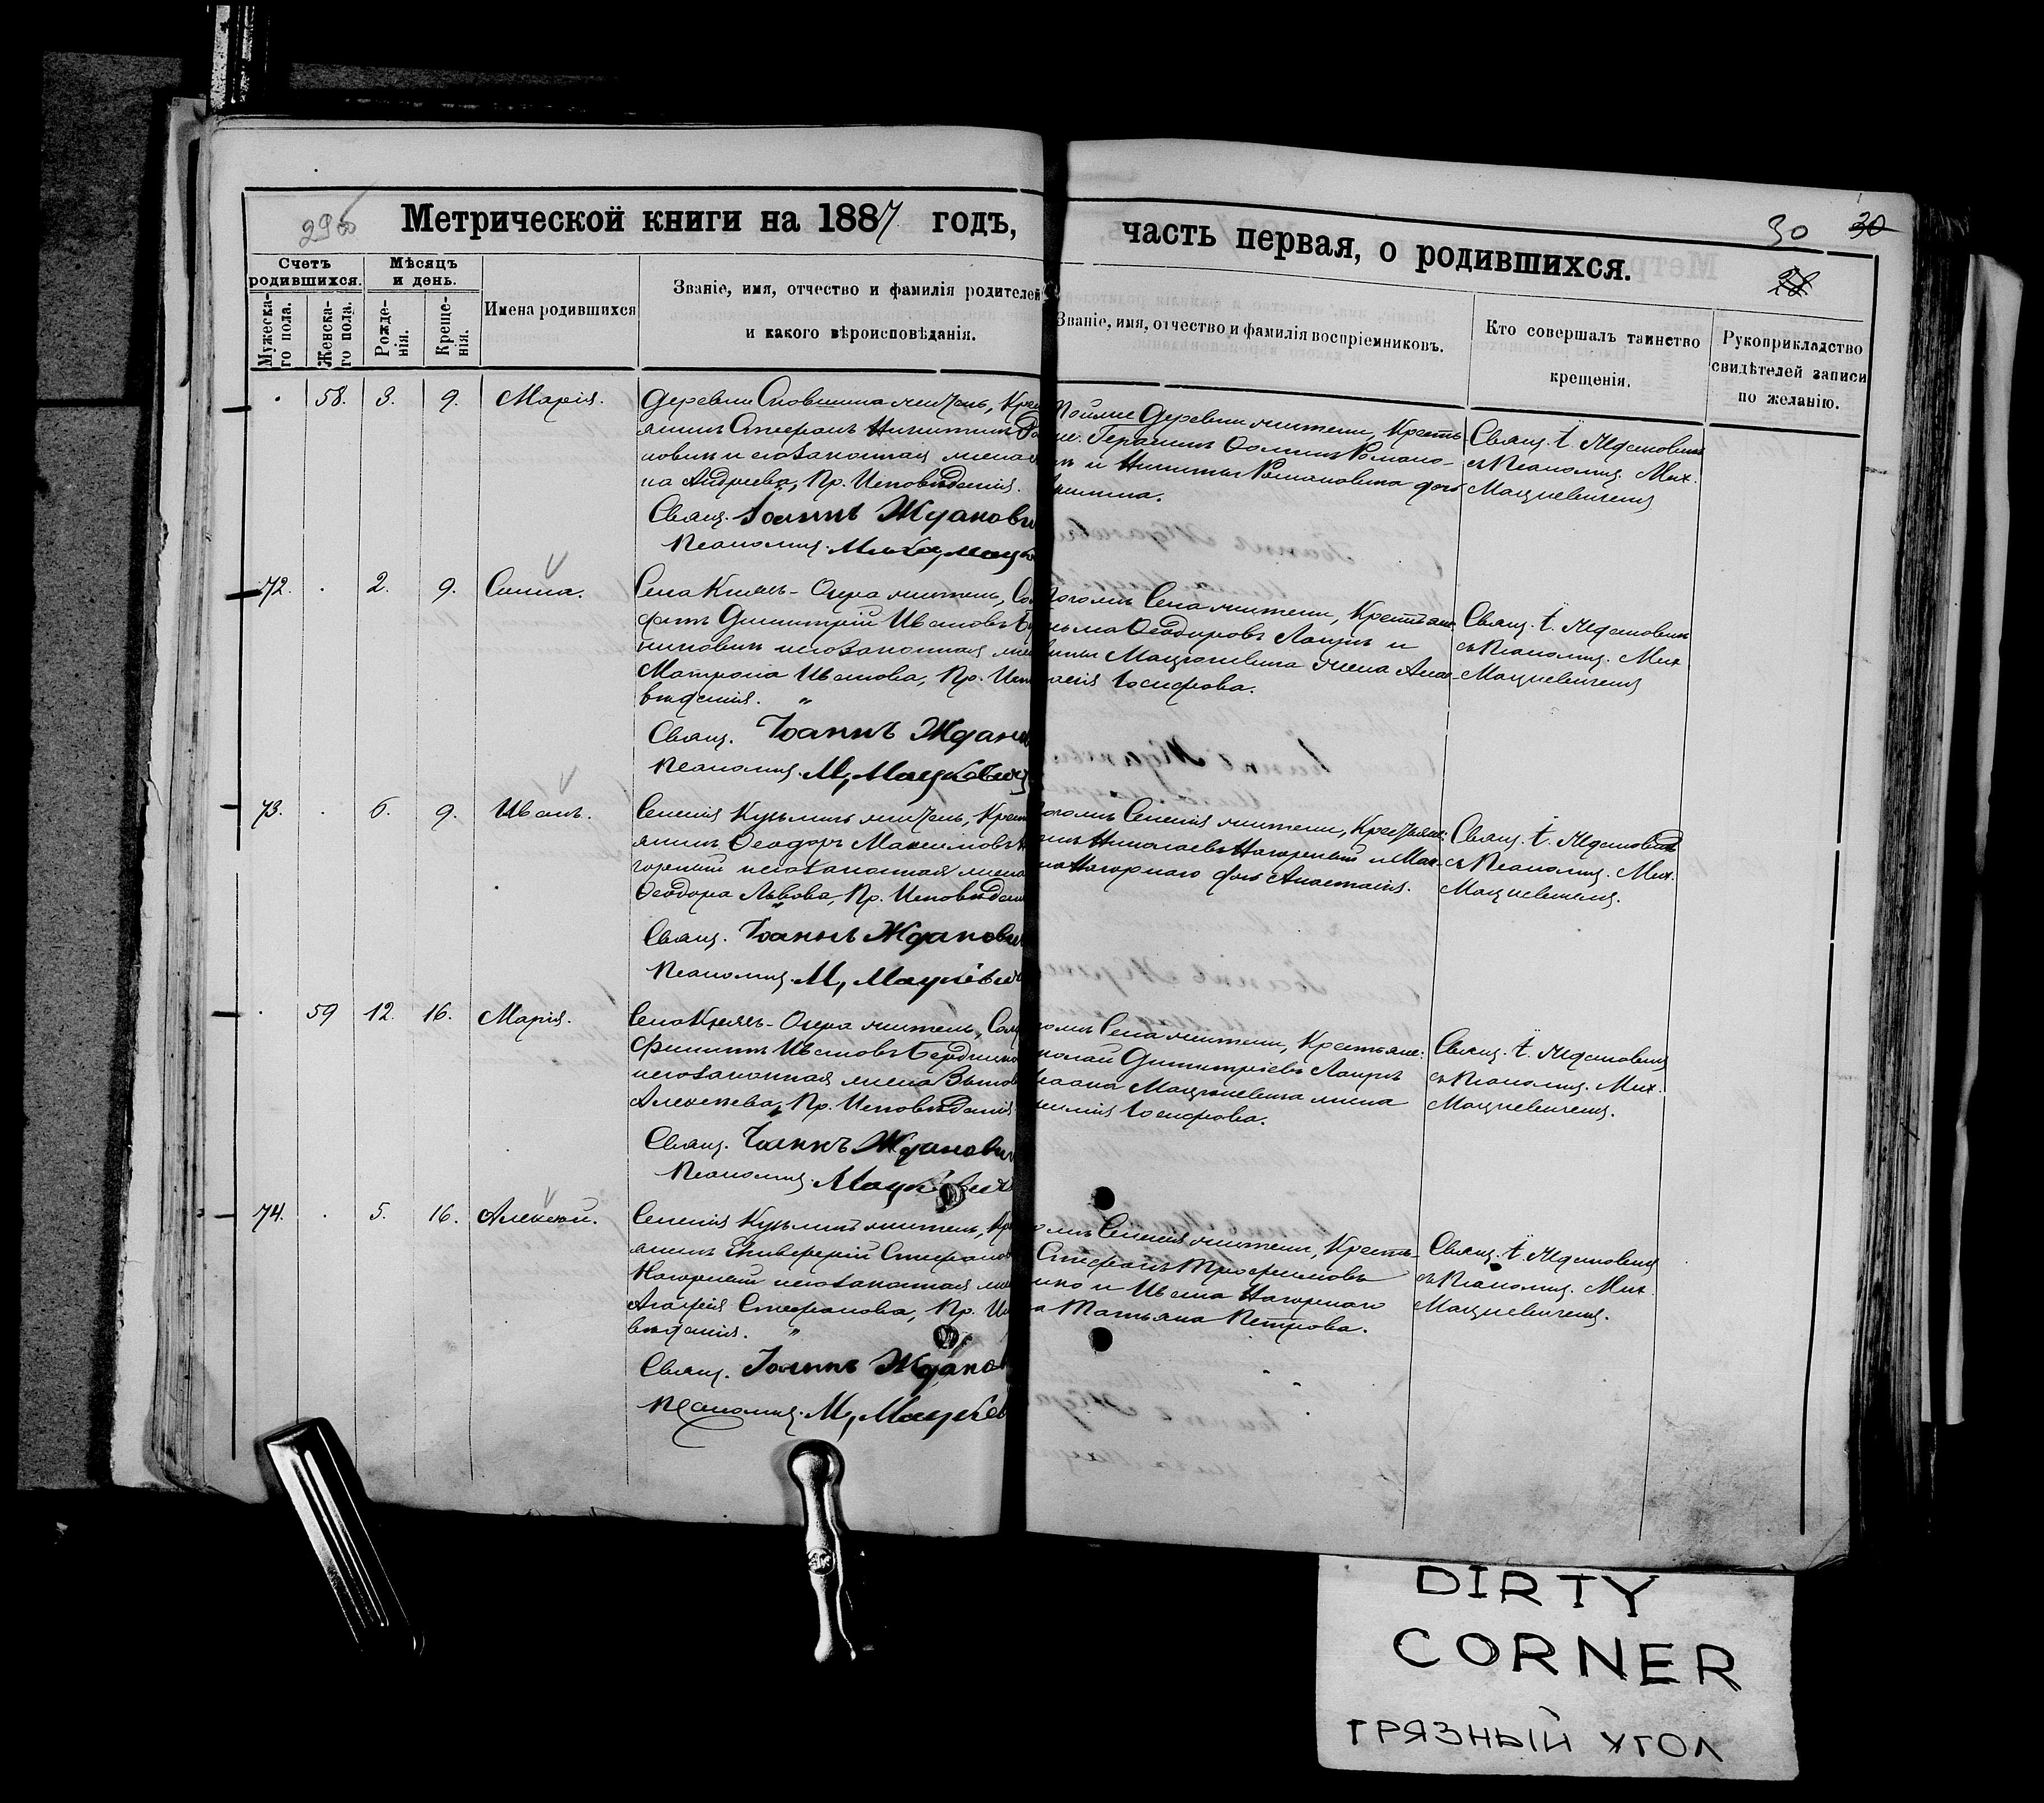 29 об
Метрической книги на 1887 годъ,
часть первая, о родившихся.
30 30
28
Счетъ родившихся.
Мѣсяцъ и день.
Мужеска-го пола.
Женска-го пола.
Рожде-нія.
Креще-нія.
Имена родившихся
Званіе, имя, отчество и фамилія родителей
и какого вѣроисповѣданія.
Званіе, имя, отчество и фамилія воспріемниковъ.
Кто совершалъ таинство
крещенія.
Рукоприкладство
свидѣтелей записи
по желанію.
58. 3. 9. Марія.
житель, Крес
янинъ Стефанъ Никитинъ
новичъ и его законная жена
на Андреева, Пр. Исповѣданія.
Свящ. Іоаннъ Жданови
Псаломщ.
Деревни жители, Кресть
Герасимъ Романо-
и Никиты Романовича дочь
Свящ. І. Ждановичъ
съ Псаломщ. Мих.
Мацкевичемъ
72. 2. 9.
Села Князь-Озера житель, Сол
датъ Димитрій Ивановъ
и его законная же
Матрона Иванова, Пр. Испо
вѣданія.
Свящ. Іоаннъ Ждано
Псаломщ. М. Мацкевич
Села жители, Крестьяне
Ѳеодоровъ Лапунъ и
жена Ана-
Іосифова.
Свящ. І. Ждановичъ
съ Псаломщ. Мих
Мацкевичемъ
73. 6. 9. Иванъ.
Селенія Кузьмичъ житель, Крест
янинъ Ѳеодоръ Максимовъ На
горный и его законная жена
Ѳеодора Львова, Пр. Исповѣдані
Свящ. Іоаннъ Жданович
Псаломщ. М. Мацкевич
Селенія жители, Крестьяне:
Николаевъ Нагорный и Мак-
Нагорнаго дочь Анастасія.
Свящ. І. Ждановичъ
съ Псаломщ. Мих.
Мацкевичемъ.
59 12. 16. Марія.
Села Князь-Озера житель, Сол
Филиппъ Ивановъ
и его законная жена
Алексеева, Пр. Исповѣданія
Свящ. Іоаннъ Жданович
Псаломщ. Мацкевич
Села жители, Крестьяне:
Димитріевъ Лапунъ
жена
Іосифова.
Свящ. І. Ждановичъ
съ Псаломщ. Мих.
Мацкевичемъ.
74. 5. 16. Алексѣй.
Селенія Кузьмичъ житель, Кр
янинъ Елиферій Стефанов
Нагорный и его законная же
Агафія Стефанова, Пр. Ис
вѣданія.
Свящ. Іоаннъ Ждано
Псаломщ. М. Мацкев
Селенія жители, Кресть-
Стефанъ Трофимовъ
и Ивана Нагорнаго
Татьяна Петрова.
Свящ. І. Ждановичъ
съ Псаломщ. Мих.
Мацкевичемъ.
DIRTY
CORNER
ГРЯЗНЫЙ УГОЛ